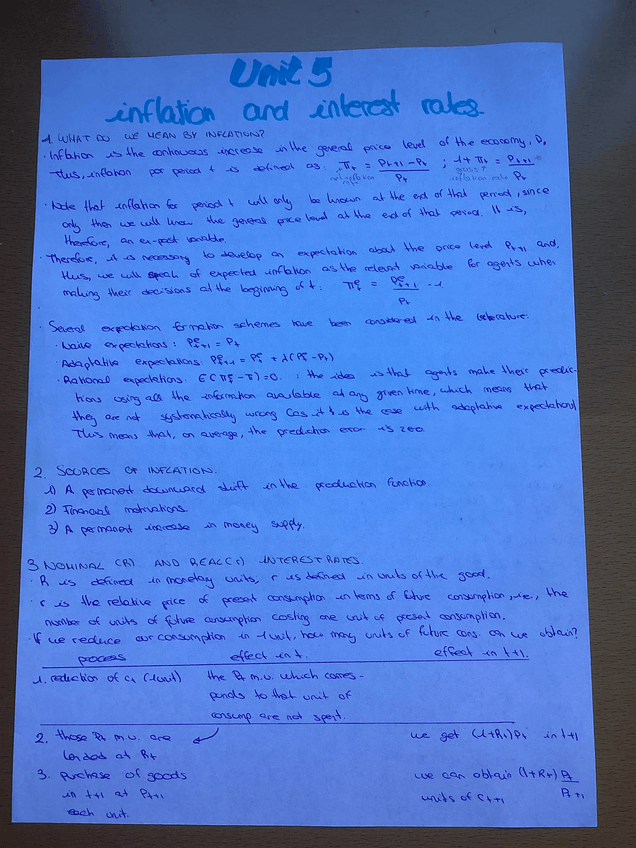 Unit 5
inflation and interest rates.
1. WHAT DO WE MEAN BY INFLATION?
· Inflation is the continuous increase in the general price level of the economy, P,
thus, inflation per period t is defined as: πt = (Pt+1 - Pt)/Pt ; 1+πt = Pt+1/Pt
net inflation rate gross inflation rate
· Note that inflation for period t will only be known at the end of that period, since
only then we will know the general price level at the end of that period. It is,
therefore, an ex-post variable.
· Therefore, it is necessary to develop an expectation about the price level Pt+1 and,
thus, we will speak of expected inflation as the relevant variable for agents when
making their decisions at the beginning of t: πt^e = P^e t+1/Pt - 1
· Several expectation formation schemes have been considered in the literature:
· Naive expectations: P^e t+1 = Pt
· Adaptative expectations: P^e t+1 = P^e t + λ(P^e t - Pt)
· Rational expectations: E(πt^e - π) = 0. : the idea is that agents make their predic-
tions using all the information available at any given time, which means that
they are not systematically wrong (as it is the case with adaptative expectations)
This means that, on average, the prediction error is zero.
2. SOURCES OF INFLATION.
1) A permanent downward shift in the production function.
2) Financial motivations.
3) A permanent increase in money supply.
3 NOMINAL (R) AND REAL (r) INTEREST RATES.
· R is defined in monetary units, r is defined in units of the good.
· r is the relative price of present consumption in terms of future consumption, i.e., the
number of units of future consumption costing one unit of present consumption.
· If we reduce our consumption in 1 unit, how many units of future cons. can we obtain?
process effect in t. effect in t+1.
1. reduction of ct (1 unit) the Pt m.u. which corres-
ponds to that unit of
consump are not spent.
2. those Pt m.u. are we get (1+Rt)Pt in t+1
lended at Rt
3. purchase of goods we can obtain (1+Rt) Pt/Pt+1
in t+1 at Pt+1 units of Ct+1
each unit.